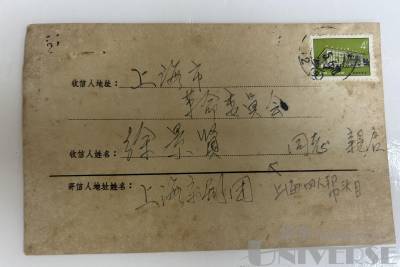 4
收信人地址：上海市
革命委员会
收信人姓名：徐景贤 同志 亲启
寄信人地址姓名：上海京剧团 上海四人帮头目
UNIVERSE